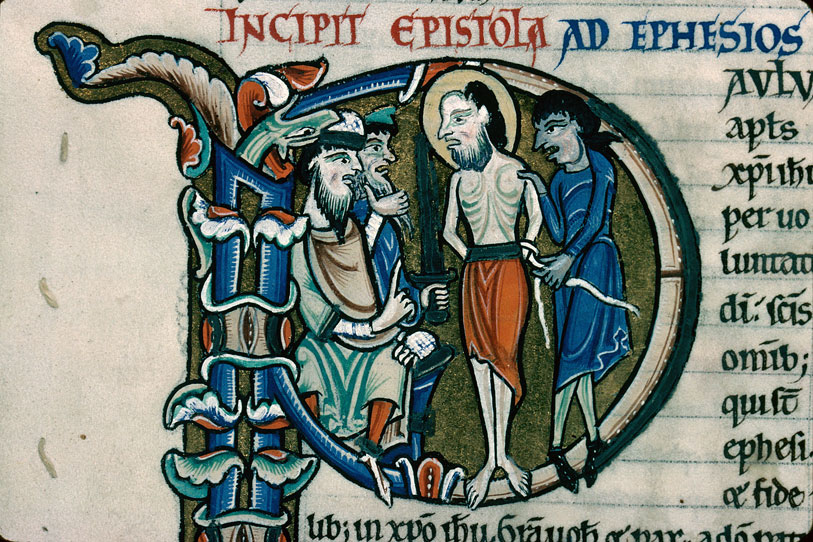 INCIPIT EPISTOLA AD EPHESIOS
AVLV
apts
xp̅i ih̅u
per uo
luntatē
dī: sc̅is
om̅ib;
qui st̅
ephesi.
& fide
lib; in xp̅o ih̅u. Gr̅a uob̅ & pax. a dō pat